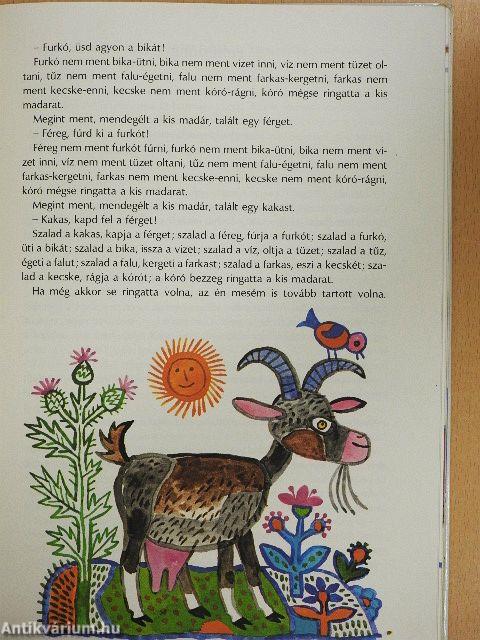 – Furkó, üsd agyon a bikát!
Furkó nem ment bika-ütni, bika nem ment vizet inni, víz nem ment tüzet ol-
tani, tűz nem ment falu-égetni, falu nem ment farkas-kergetni, farkas nem
ment kecske-enni, kecske nem ment kóró-rágni, kóró mégse ringatta a kis
madarat.
Megint ment, mendegélt a kis madár, talált egy férget.
– Féreg, fúrd ki a furkót!
Féreg nem ment furkót fúrni, furkó nem ment bika-ütni, bika nem ment vi-
zet inni, víz nem ment tüzet oltani, tűz nem ment falu-égetni, falu nem ment
farkas-kergetni, farkas nem ment kecske-enni, kecske nem ment kóró-rágni,
kóró mégse ringatta a kis madarat.
Megint ment, mendegélt a kis madár, talált egy kakast.
– Kakas, kapd fel a férget!
Szalad a kakas, kapja a férget; szalad a féreg, fúrja a furkót; szalad a furkó,
üti a bikát; szalad a bika, issza a vizet; szalad a víz, oltja a tüzet; szalad a tűz,
égeti a falut; szalad a falu, kergeti a farkast; szalad a farkas, eszi a kecskét; sza-
lad a kecske, rágja a kórót; a kóró bezzeg ringatta a kis madarat.
Ha még akkor se ringatta volna, az én mesém is tovább tartott volna.
Antikvárium.hu